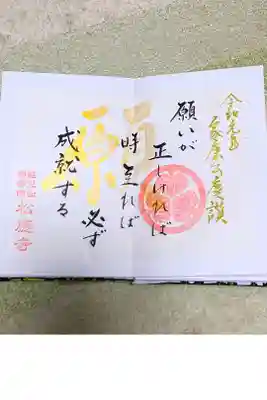 令和元年
家康公慶讃
願
願いが
正しければ
時至れば
必ず
成就する
松應寺